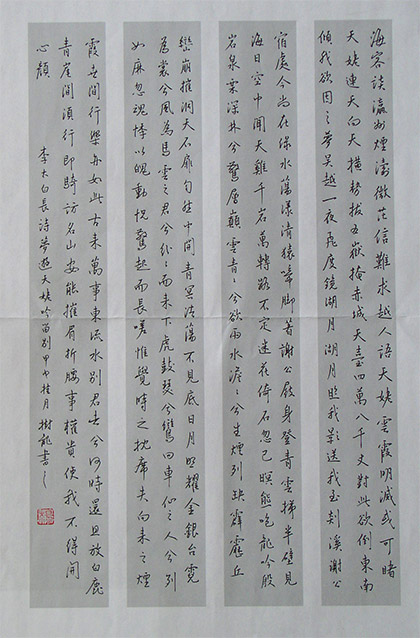 海客談瀛洲煙濤微茫信難求越人語天姥雲霞明滅或可睹
天姥連天向天橫勢拔五嶽掩赤城天臺四萬八千丈對此欲倒東南
傾我欲因之夢吳越一夜飛度鏡湖月湖月照我影送我至剡溪謝公
宿處今尚在綠水蕩漾清猿啼腳著謝公屐身登青雲梯半壁見
海日空中聞天雞千岩萬轉路不定迷花倚石忽已暝熊咆龍吟殷
岩泉栗深林兮驚層巔雲青々兮欲雨水澹々兮生煙列缺霹靂丘
巒崩摧洞天石扉訇然中開青冥浩蕩不見底日月照耀金銀台霓
為裳兮風為馬雲之君兮紛々而來下虎鼓瑟兮鸞回車仙之人兮列
如麻忽魂悸以魄動怳驚起而長嗟惟覺時之枕席失向來之煙
霞世間行樂亦如此古來萬事東流水別君去兮何時還且放白鹿
青崖間須行即騎訪名山安能摧眉折腰事權貴使我不得開
心顏 李太白長詩夢遊天姥吟留別甲午桂月樹龍書之